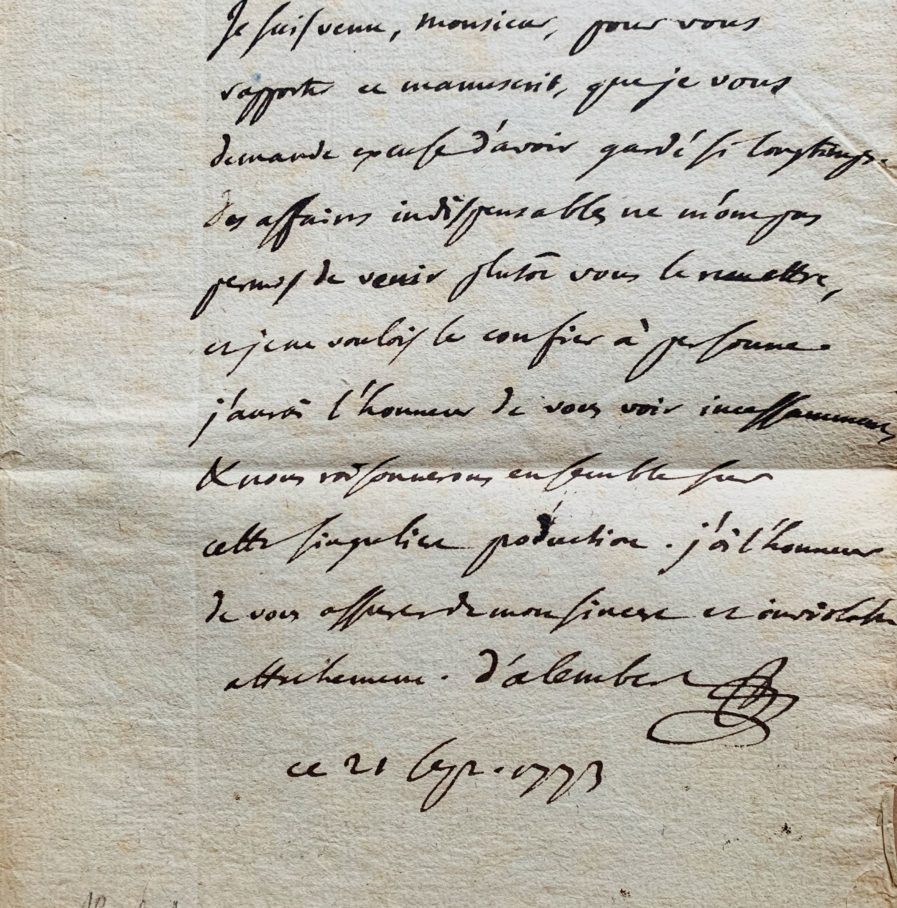 Je suis venu, monsieur, pour vous
rapporter ce manuscrit, que je vous
demande excuse d'avoir gardé si longtemps.
des affaires indispensables ne m'ont pas
permis de venir plutôt vous le remettre,
et je ne voulois le confier à personne.
j'aurai l'honneur de vous voir incessamment,
& nous raisonnerons ensemble sur
cette singuliere production. j'ai l'honneur
de vous assurer de mon sincere et inviolable
attachement. d'alembert
ce 21 sept. 1773